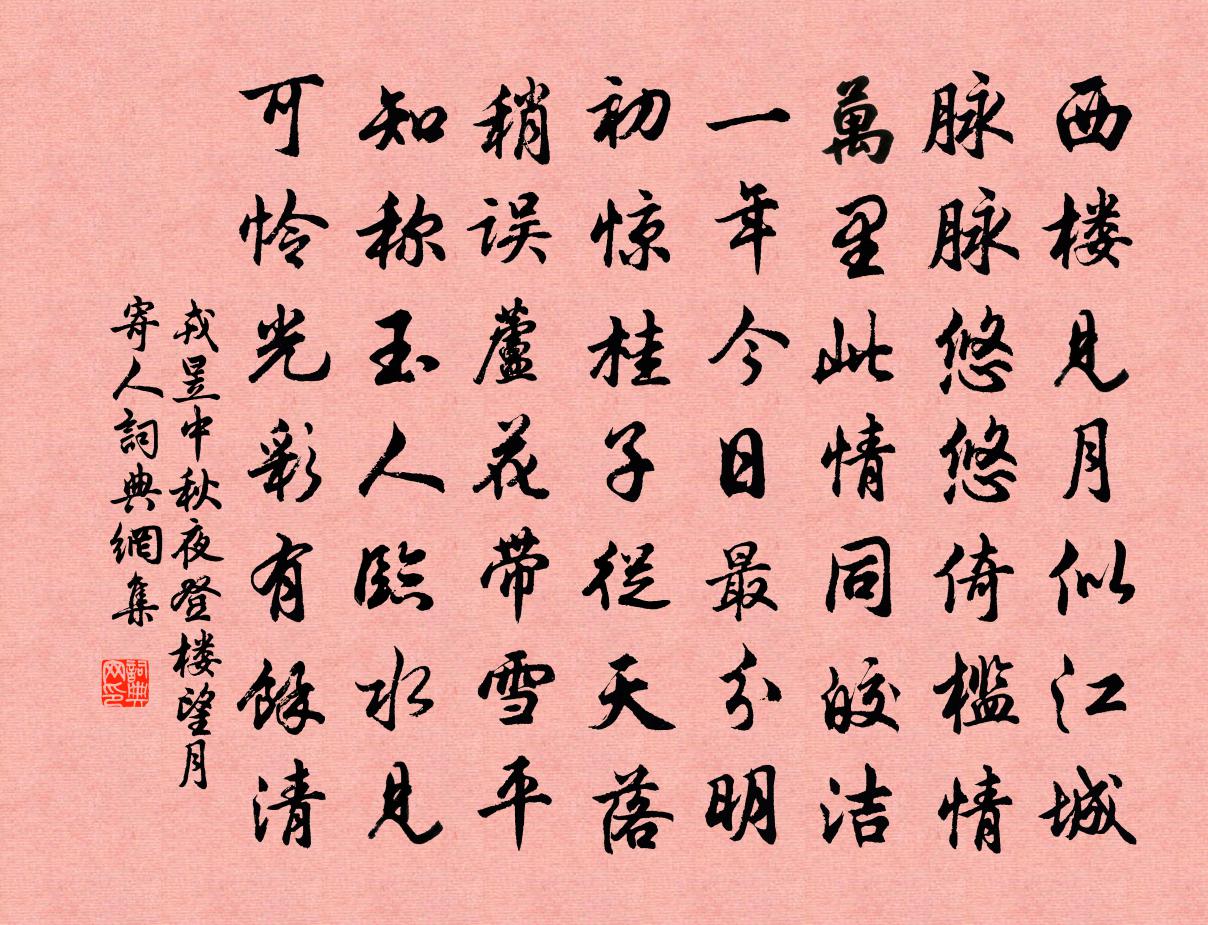 西楼見月似江城
脉脉悠悠倚槛情
萬里此情同皎洁
一年今日最分明
初惊桂子從天落
稍误蘆花带雪平
知称玉人臨水見
可怜光彩有餘清
戎昱中秋夜登楼望月
寄人詞典網集
詞典
网印